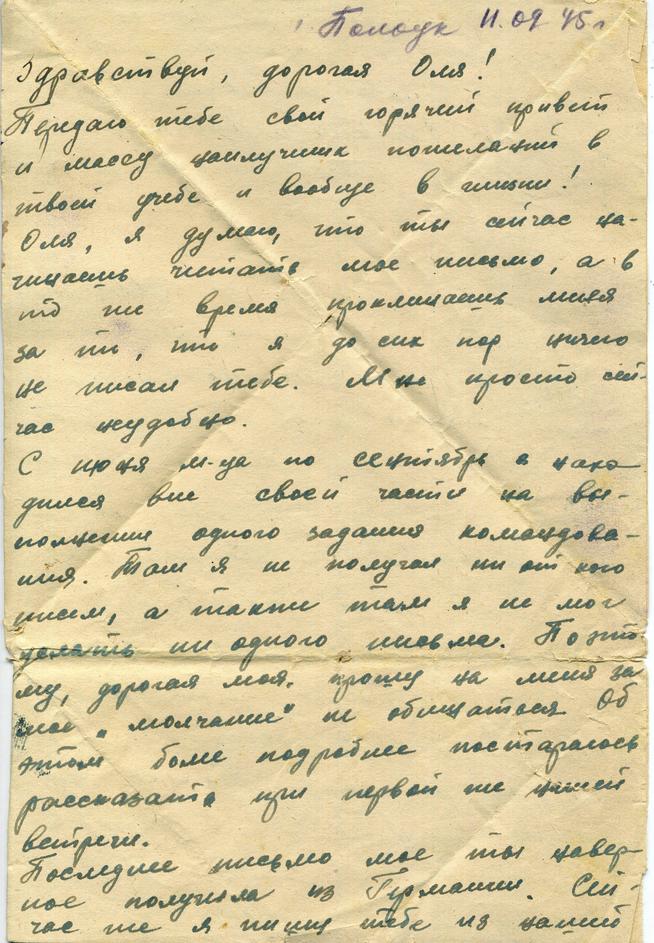 Полоцк 11.09 45 г
Здравствуй, дорогая Оля!
Передаю тебе свой горячий привет
и массу наилучших пожеланий в
твоей учебе и вообще в жизни!
Оля, я думаю, что ты сейчас на-
чинаешь читать мое письмо, а в
то же время проклинаешь меня
за то, что я до сих пор ничего
не писал тебе. Мне просто сей-
час неудобно.
С июня м-ца по сентябрь я нахо
дился вне своей части на вы-
полнении одного задания командова-
ния. Там я не получал ни от кого
писем, а также там я не мог
сделать ни одного письма. Поэто
му, дорогая моя, прошу на меня за
мое „молчание" не обижаться Об
этом более подробнее постараюсь
рассказать при первой же нашей
встрече.
Последнее письмо мое ты навер
ное получила из Германии. Сей-
час же я пишу тебе из нашей